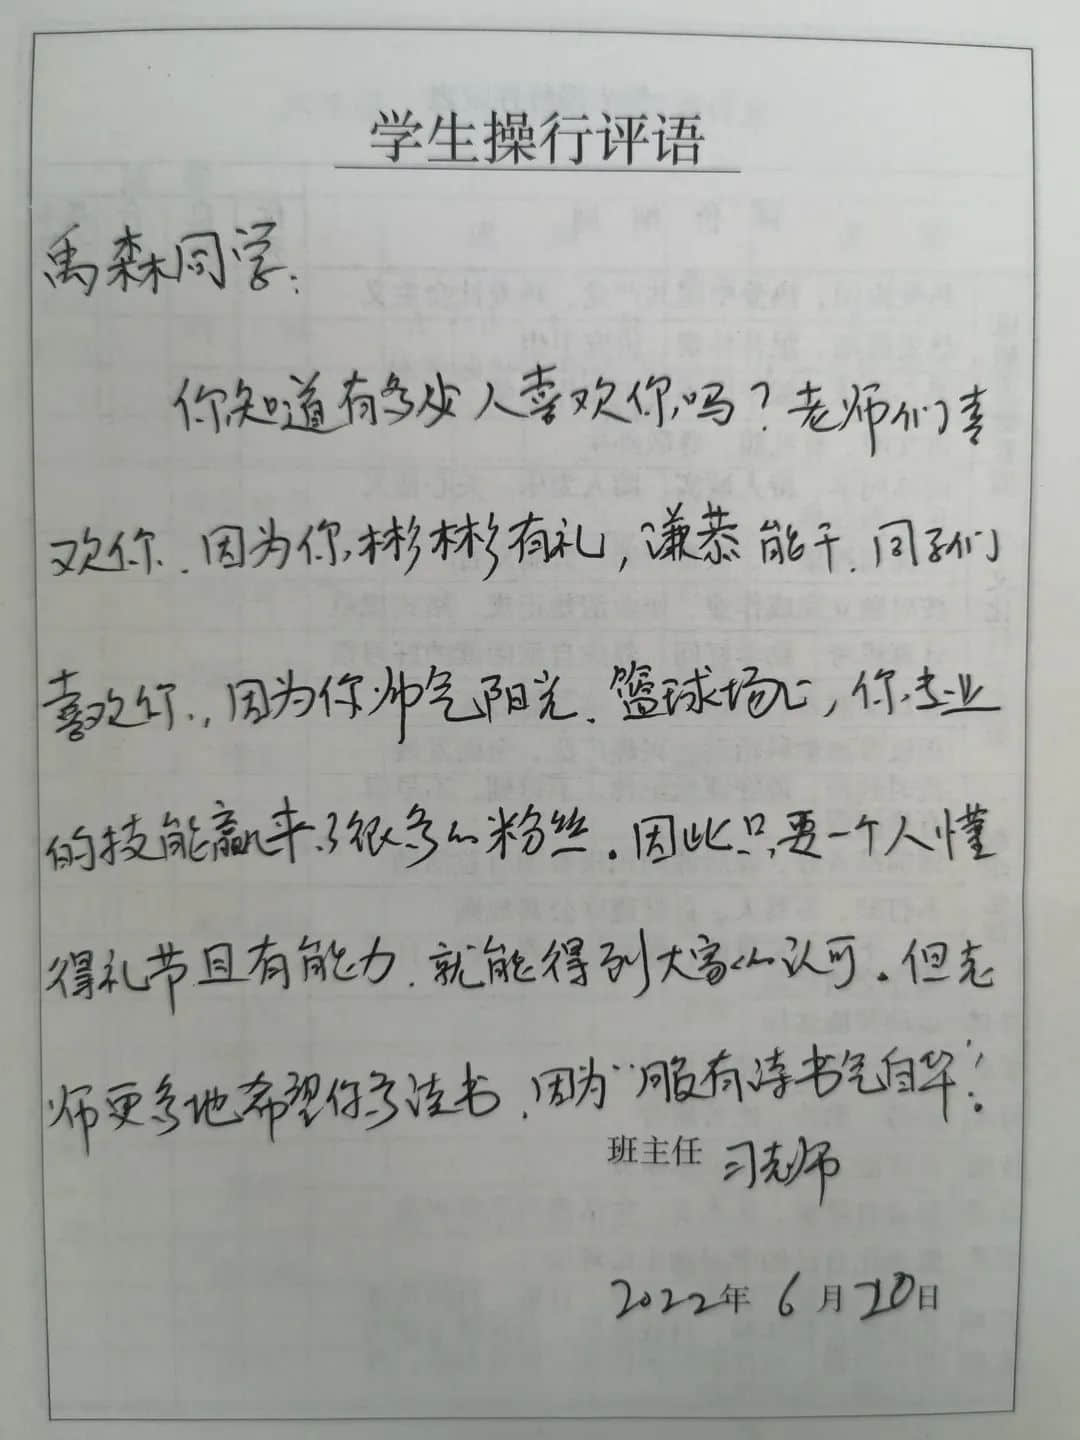 学生操行评语
禹森同学:
你知道有多少人喜欢你吗？老师们喜
欢你、因为你彬彬有礼，谦恭能干、同学们
喜欢你，因为你帅气阳光、篮球场上，你专业
的技能赢来了很多的粉丝。因此只要一个人懂
得礼节且有能力、就能得到大家的认可。但老
师更多地希望你多读书、因为“腹有诗书气自华”!
班主任 习老师
2022年 6月20日